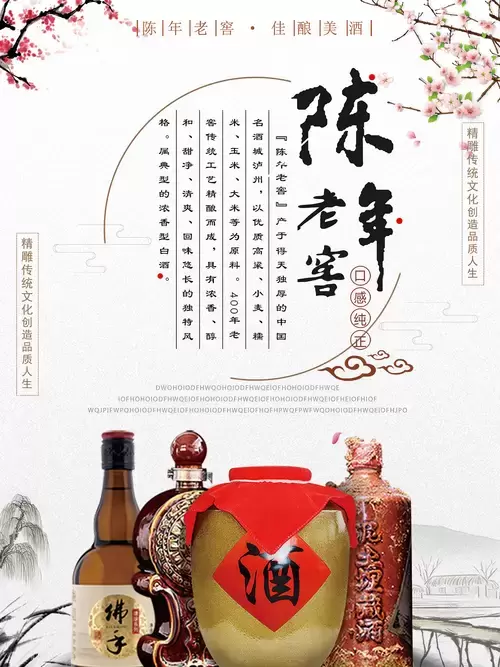 陈年老窖·佳酿美酒
陈年
老窖
口感纯正
精雕传统文化创造品质人生
『陈年老窖』产于得天独厚的中国
名酒城泸州，以优质高粱、小麦、糯
米、玉米、大米等为原料。400年老
窖传统工艺精酿而成，具有浓香、醇
和、甜净、清爽、回味悠长的独特风
格。属典型的浓香型白酒。
精雕传统文化创造品质人生
DWQHOIODFHWQDHOIODFHWQEIOFHOHOIODFHWQE
IOFHOHOIODFHWQEIOFHOHOIODFHWQEIOFHOHOIODFHWQEIOFHEIOFHIOF
佛手
酒
泥土埋藏酒